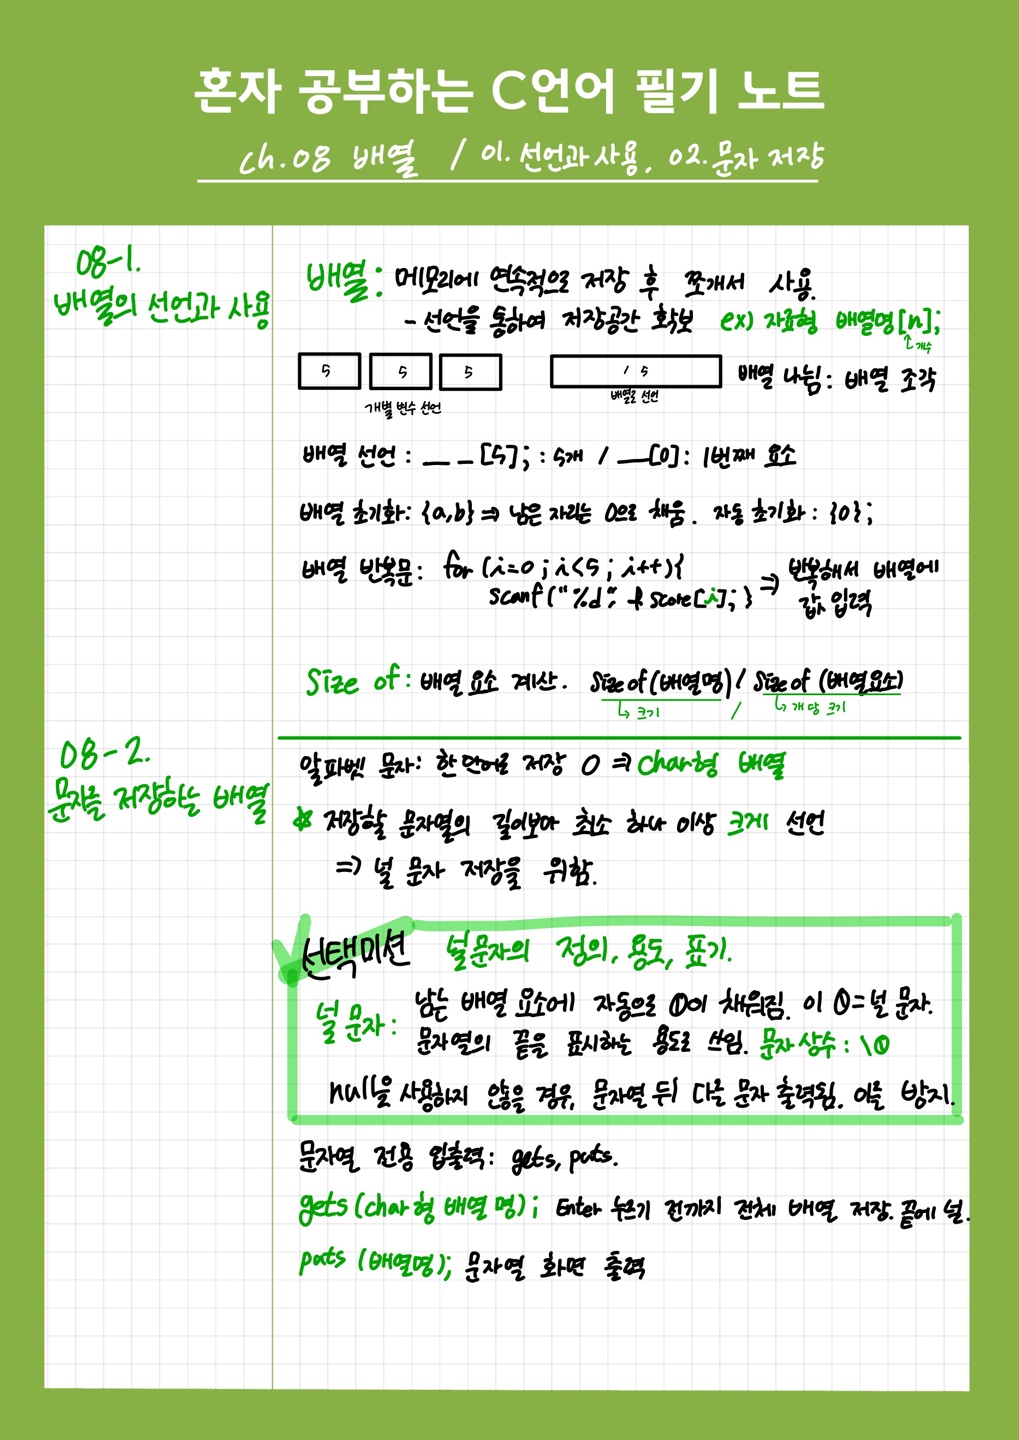 혼자 공부하는 C언어 필기 노트
ch.08 배열 / 01. 선언과 사용, 02. 문자 저장
08-1.
배열의 선언과 사용
배열: 메모리에 연속적으로 저장 후 쪼개서 사용.
- 선언을 통하여 저장공간 확보 ex) 자료형 배열명[n];
개수
5 5 5 1 5 배열 나눔: 배열 조각
개별 변수 선언 배열로 선언
배열 선언 : __ _ [5]; : 5개 / __[0]: 1번째 요소
배열 초기화: {a,b} ⇒ 남은 자리는 0으로 채움. 자동 초기화 : {0};
배열 반복문: for (i=0 ; i<5 ; i++){ ⇒ 반복해서 배열에
scanf("%d", & score[i]; } 값 입력
Size of: 배열 요소 계산. Size of (배열명) / Size of (배열요소)
↳ 크기 / ↳ 개당 크기
08-2.
문자를 저장하는 배열
알파벳 문자: 한 단어로 저장 O ⇒ char형 배열
☆ 저장할 문자열의 길이보아 최소 하나 이상 크게 선언
⇒ 널 문자 저장을 위함.
선택미션 널문자의 정의, 용도, 표기.
널 문자: 남는 배열 요소에 자동으로 0이 채워짐. 이 0=널 문자.
문자열의 끝을 표시하는 용도로 쓰임. 문자 상수 : \0
null을 사용하지 않을 경우, 문자열 뒤 다른 문자 출력됨. 이를 방지.
문자열 전용 입출력: gets, puts.
gets (char형 배열 명); Enter 누르기 전까지 전체 배열 저장. 끝에 널.
puts (배열명); 문자열 화면 출력